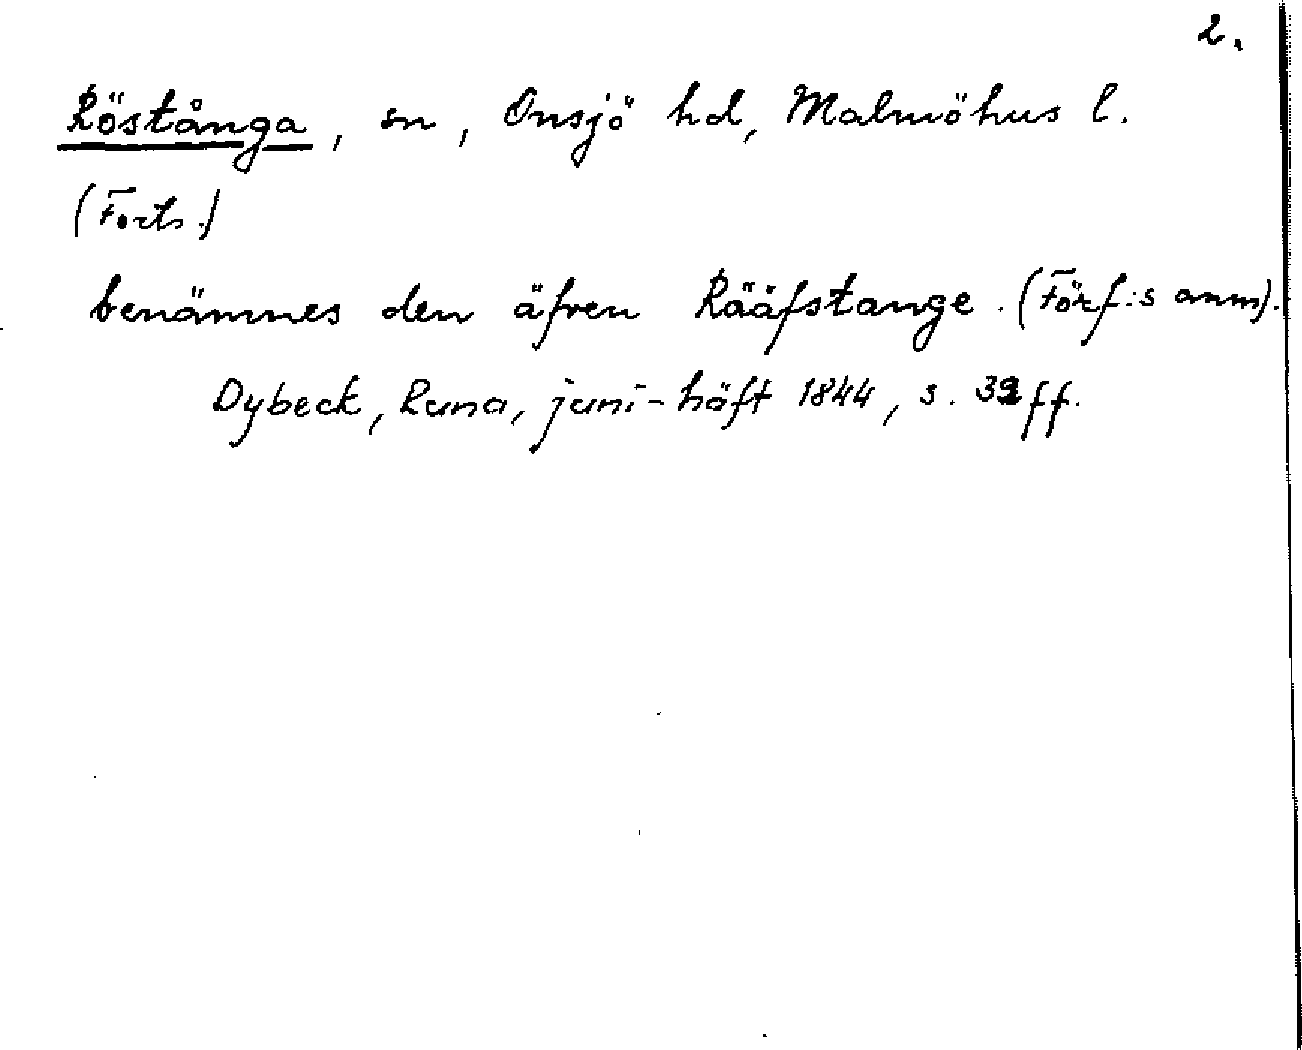 2.
Röstånga, sn, Onsjö hd, Malmöhus l.
(Forts.)
benämnes den äfven Rääfstange. (Förf:s anm).
Dybeck, Runa, juni-häft 1844, s. 39 ff.